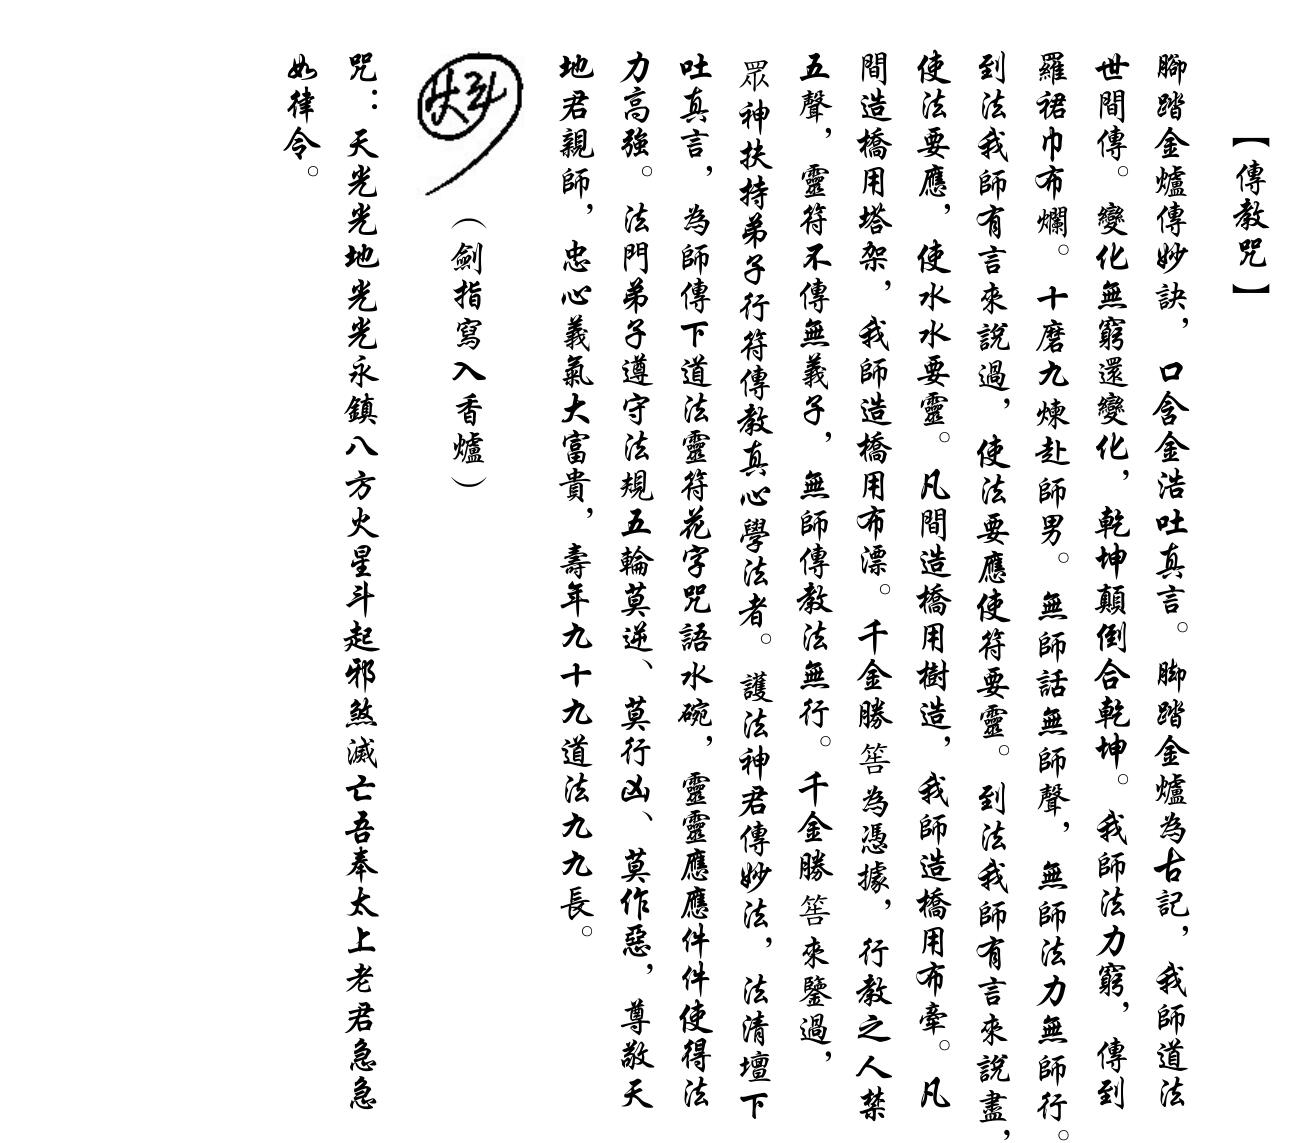 【傳教咒】
腳踏金爐傳妙訣，口含金浩吐真言。腳踏金爐為古記，我師道法
世間傳。變化無窮還變化，乾坤顛倒合乾坤。我師法力窮，傳到
羅裙巾布爛。十磨九煉赴師男。無師話無師聲，無師法力無師行。
到法我師有言來說過，使法要應使符要靈。到法我師有言來說盡，
使法要應，使水水要靈。凡間造橋用樹造，我師造橋用布牽。凡
間造橋用塔架，我師造橋用布漂。千金勝筶為憑據，行教之人禁
五聲，靈符不傳無義子，無師傳教法無行。千金勝筶來鑒過，
眾神扶持弟子行符傳教真心學法者。護法神君傳妙法，法清壇下
吐真言，為師傳下道法靈符花字咒語水碗，靈靈應應件件使得法
力高強。法門弟子遵守法規五輪莫逆、莫行凶、莫作惡，尊敬天
地君親師，忠心義氣大富貴，壽年九十九道法九九長。
（劍指寫入香爐）
咒：天光光地光光永鎮八方火星斗起邪煞滅亡吾奉太上老君急急
如律令。